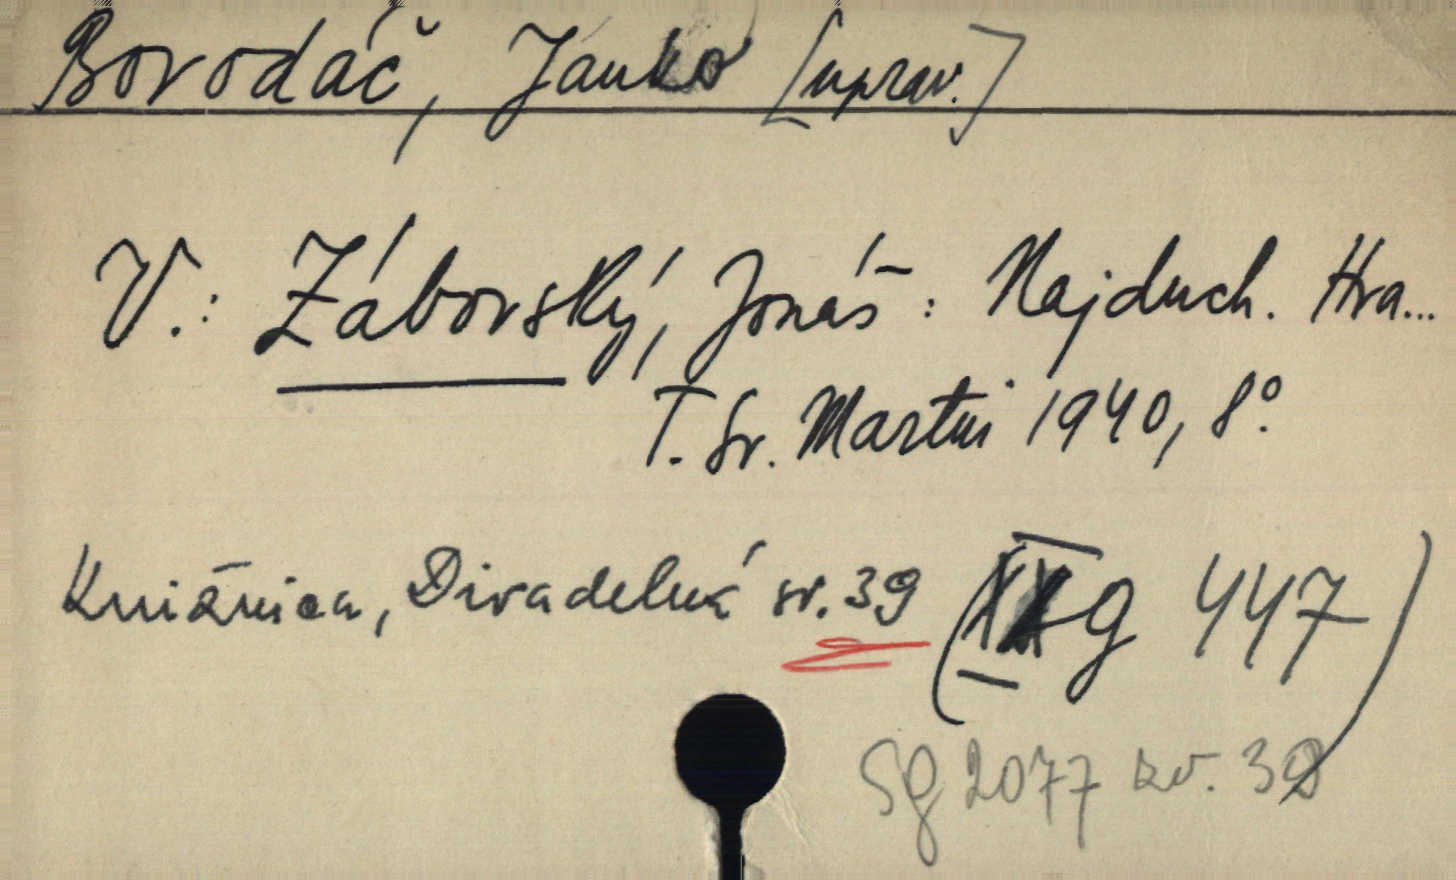 Borodáč, Janko [uprav.]
V.: Záborský, Jonáš: Najduch. Hra...
T. Sv. Martin 1940, 8°.
Knižnica, Divadelná sv. 39 (g 447)
Sg 2077 zv. 39